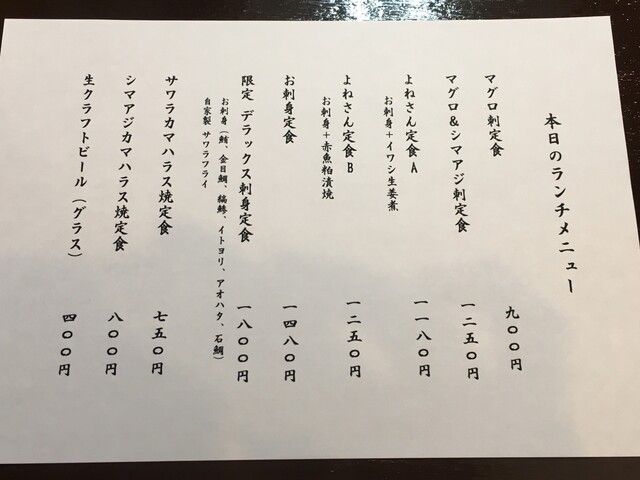 本日のランチメニュー
マグロ刺定食 九〇〇円
マグロ&シマアジ刺定食 一二五〇円
よねさん定食A 一一八〇円
お刺身+イワシ生姜煮
よねさん定食B 一二五〇円
お刺身+赤魚粕漬焼
お刺身定食 一四八〇円
限定 デラックス刺身定食 一八〇〇円
お刺身(鮪、金目鯛、縞鯵、イトヨリ、アオハタ、石鯛)
自家製 サワラフライ
サワラカマハラス焼定食 七五〇円
シマアジカマハラス焼定食 八〇〇円
生クラフトビール(グラス) 四〇〇円